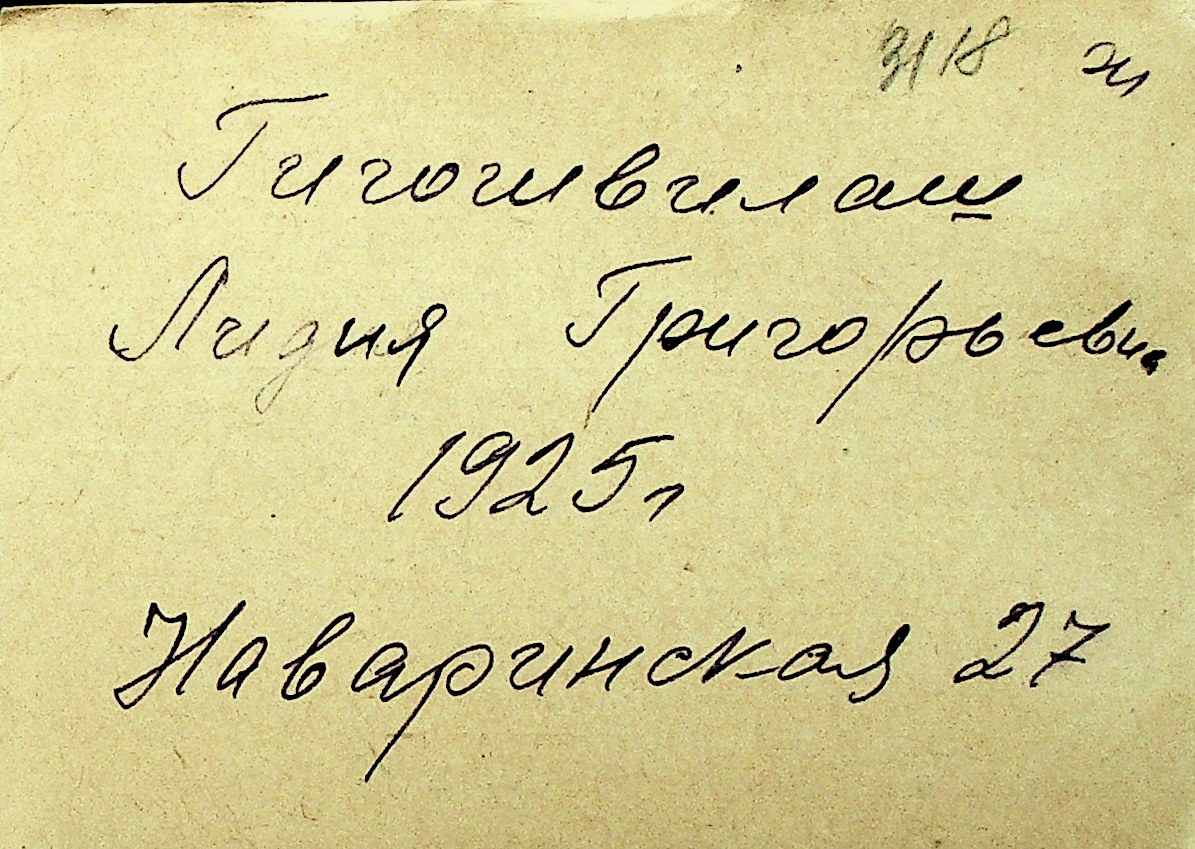 3118 ж
Гигошвилаш
Лидия Григорьевна
1925г
Наваринская 27